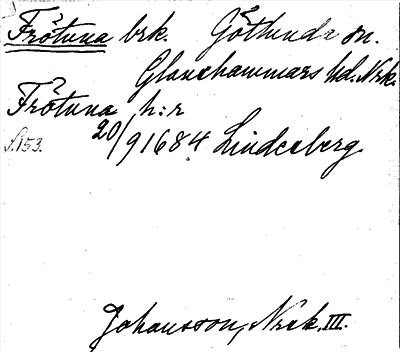 Frötuna brk. Götlunda sn.
Glanshammars hd. Nrk.
Frötuna h:r
s.153. 20/9 1684 Lindenberg
Johansson, Nrk. III.